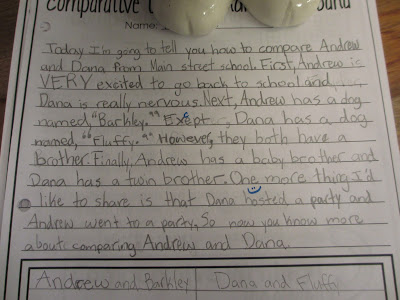 Comparative
Name:
Today I'm going to tell you how to compare Andrew
and Dana from Main street school. First, Andrew is
VERY excited to go back to school and
Dana is really nervous. Next, Andrew has a dog
named "Barkley." Exept, Dana has a dog
named, "Fluffy." However, they both have a
brother. Finally, Andrew has a baby brother and
Dana has a twin brother. One more thing I'd
like to share is that Dana hosted a party and
Andrew went to a party. So now you know more
about comparing Andrew and Dana.
Andrew and Barkley Dana and Fluffy